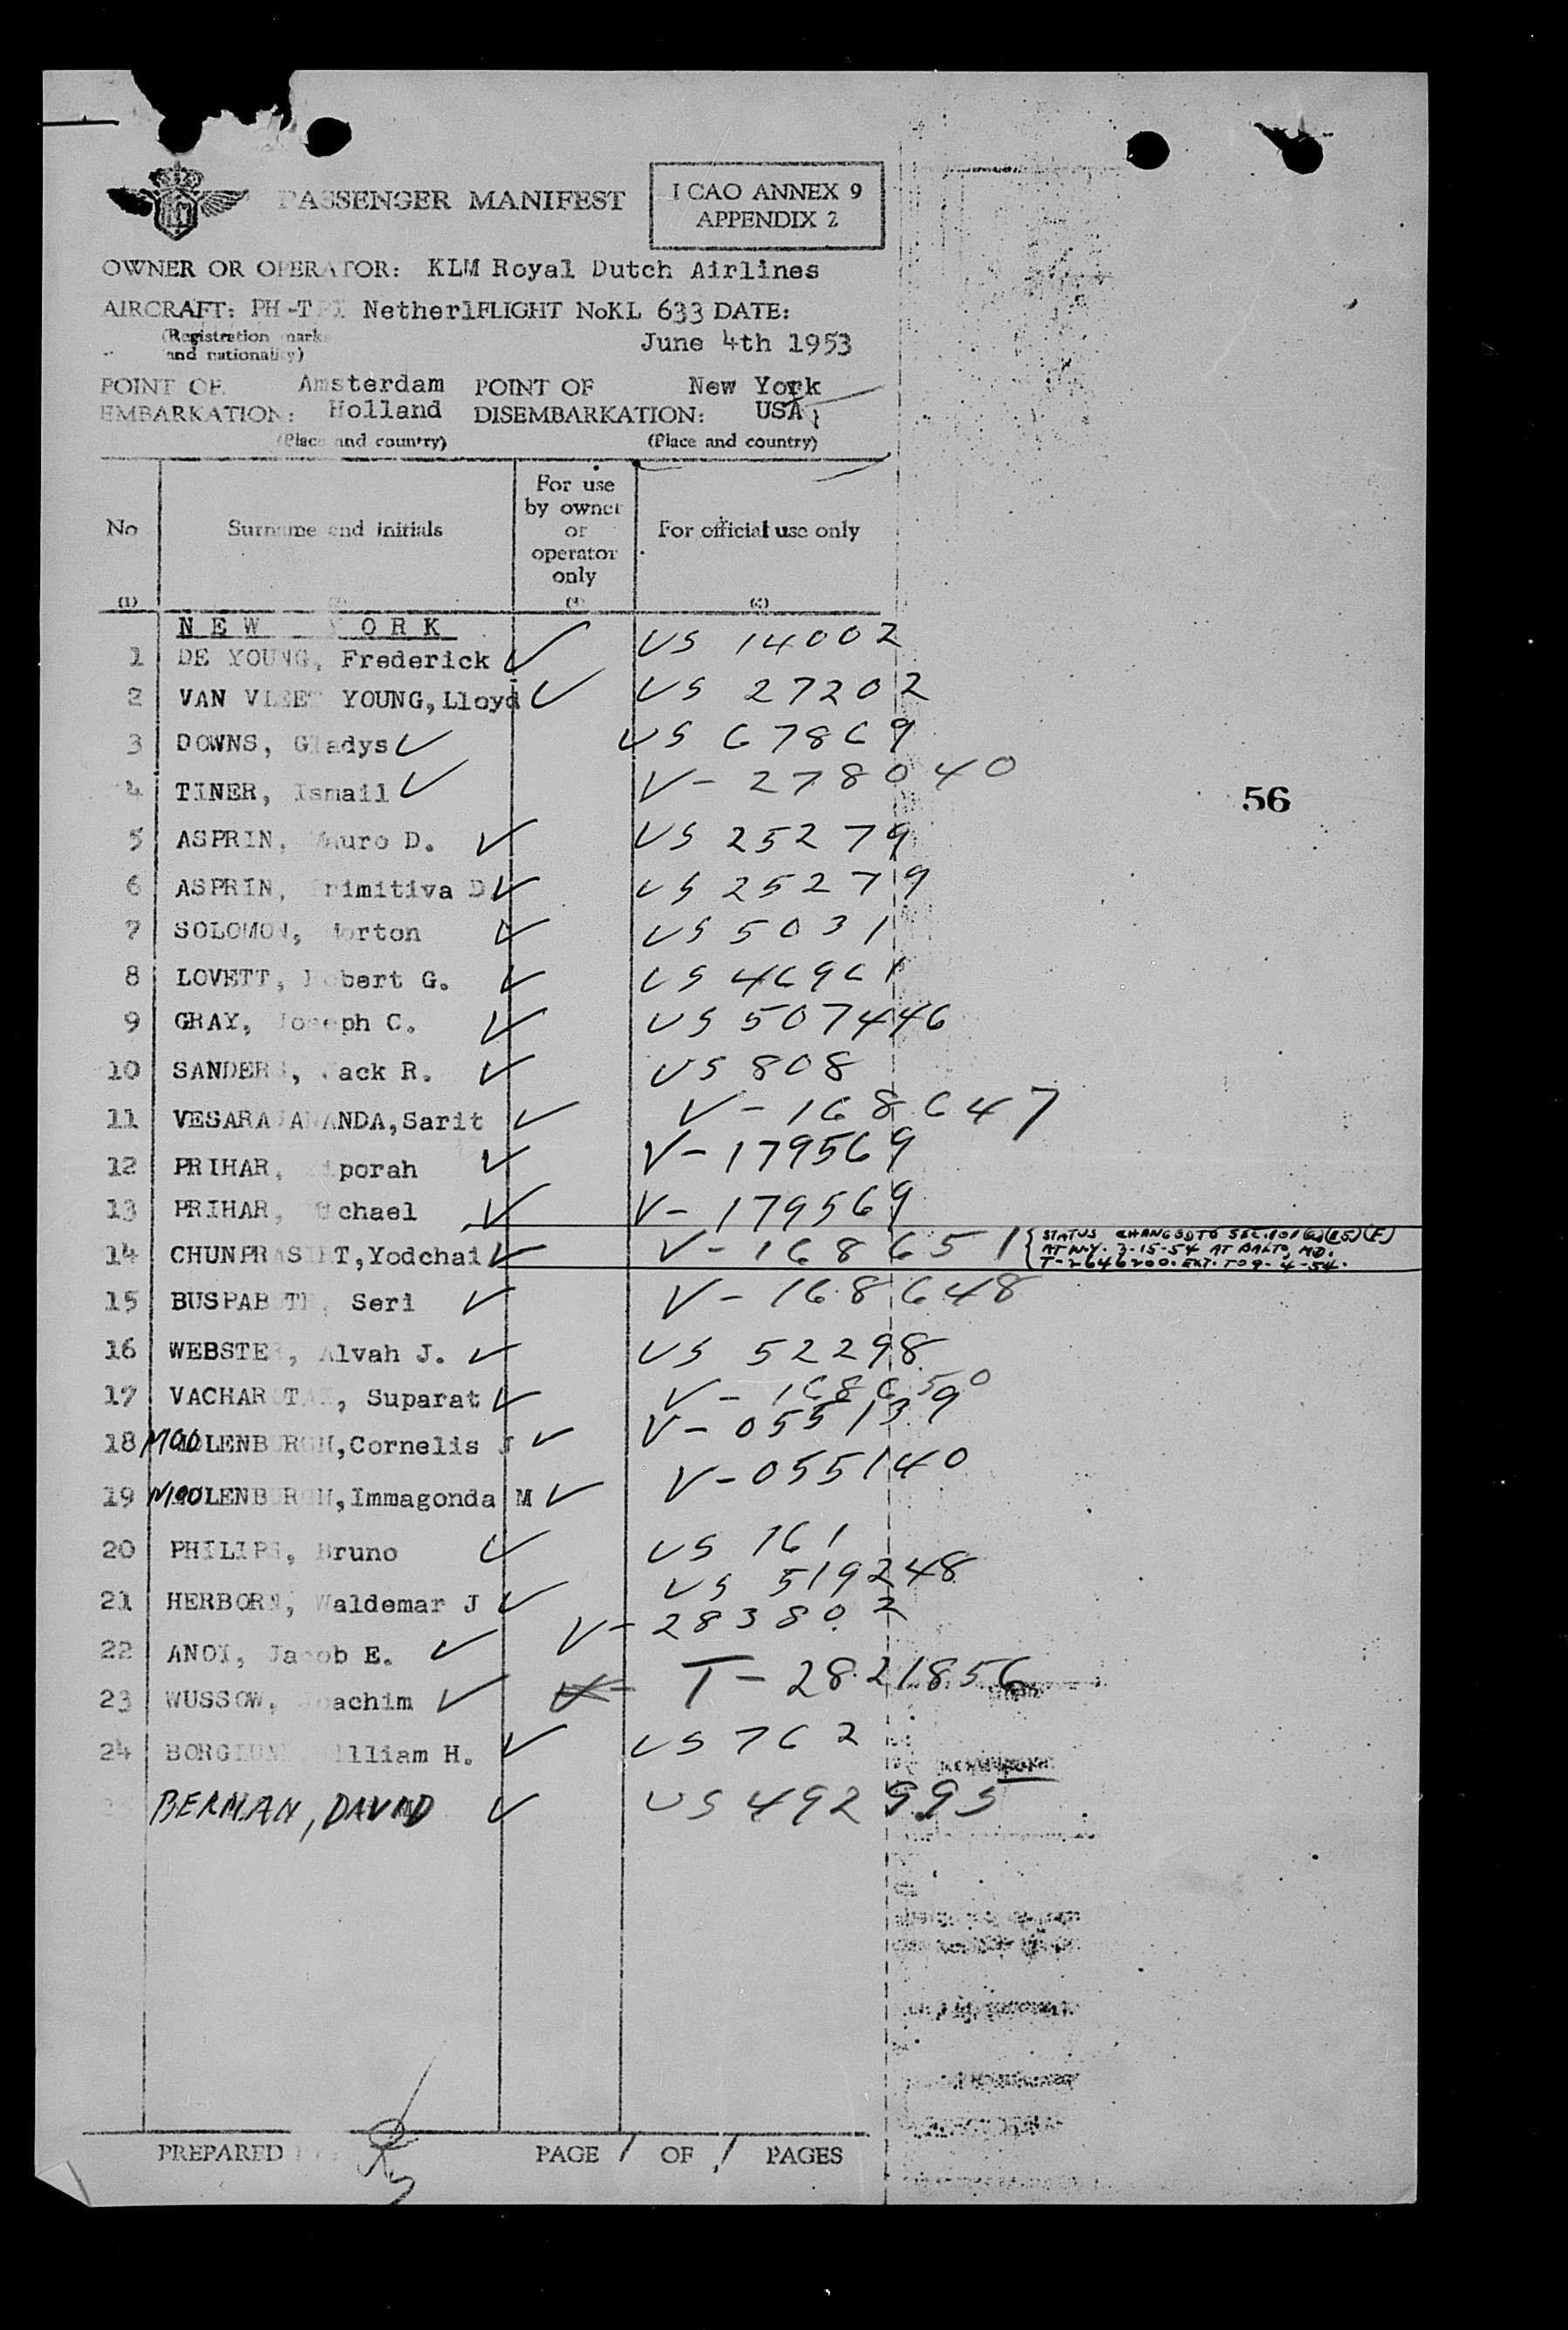 PASSENGER MANIFEST
I CAO ANNEX 9
APPENDIX 2
OWNER OR OPERATOR: KLM Royal Dutch Airlines
AIRCRAFT: Netherl FLIGHT No KL 633 DATE:
(Registration marks
and nationality)
June 4th 1953
POINT OF Amsterdam POINT OF New York
EMBARKATION: Holland DISEMBARKATION: USA
(Place and country) (Place and country)
No Surname and initials For use by owner or operator only For official use only
(1) (4)
NEW YORK
1 DE YOUNG, Frederick ✓ US 14002
2 VAN VLEET YOUNG,Lloyd ✓ US 27202
3 DOWNS, Gladys ✓ US 67869
4 TINER, Ismail ✓ V-278040
5 ASPRIN, Mauro D. ✓ US 25279
6 ASPRIN, Primitiva D ✓ US 25279
7 SOLOMON, Morton ✓ US 5031
8 LOVETT, Robert G. ✓ US 46961
9 GRAY, Joseph C. ✓ US 507446
10 SANDERS, Jack R. ✓ US 808
11 Sarit ✓ V-168647
12 PRIHAR, Ziporah ✓ V-179569
13 PRIHAR, Michael ✓ V-179569
14 CHUNPRASIET,Yodchai ✓ V-168651 { STATUS CHANGED TO SEC. 101(a)(15)(F)
AT N.Y. 7-15-54 AT BALTO, MD.
T-2646200. EXT. TO 9-4-54.
15 Seri ✓ V-168648
16 WEBSTER, Alvah J. ✓ US 52298
17 Suparat ✓ V-168650
18 MOOLENBURGH,Cornelis J ✓ V-055139
19 MOOLENBURGH,Immagonda M ✓ V-055140
20 PHILIPS, Bruno ✓ US 161
21 HERBORN, Waldemar J ✓ US 519248
22 ANOI, Jacob E. ✓ V-283802
23 WUSSOW, Joachim ✓ T-2821856
24 BORGLUND William H. ✓ US 762
BERMAN, DAVID ✓ US 492995
56
PREPARED PAGE 1 OF 1 PAGES